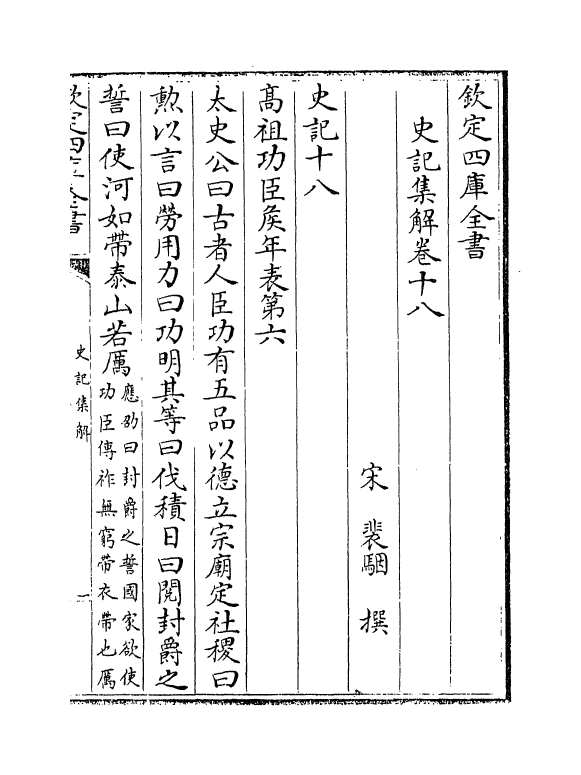 欽定四庫全書
史記集解卷十八
宋 裴駰 撰
史記十八
高祖功臣侯年表第六
太史公曰古者人臣功有五品以德立宗廟定社稷曰
勲以言曰勞用力曰功明其等曰伐積日曰閱封爵之
誓曰使河如帶泰山若厲應劭曰封爵之誓國家欲使
功臣傳祚無窮帶衣帶也厲
欽定四庫全書
史記集解
一